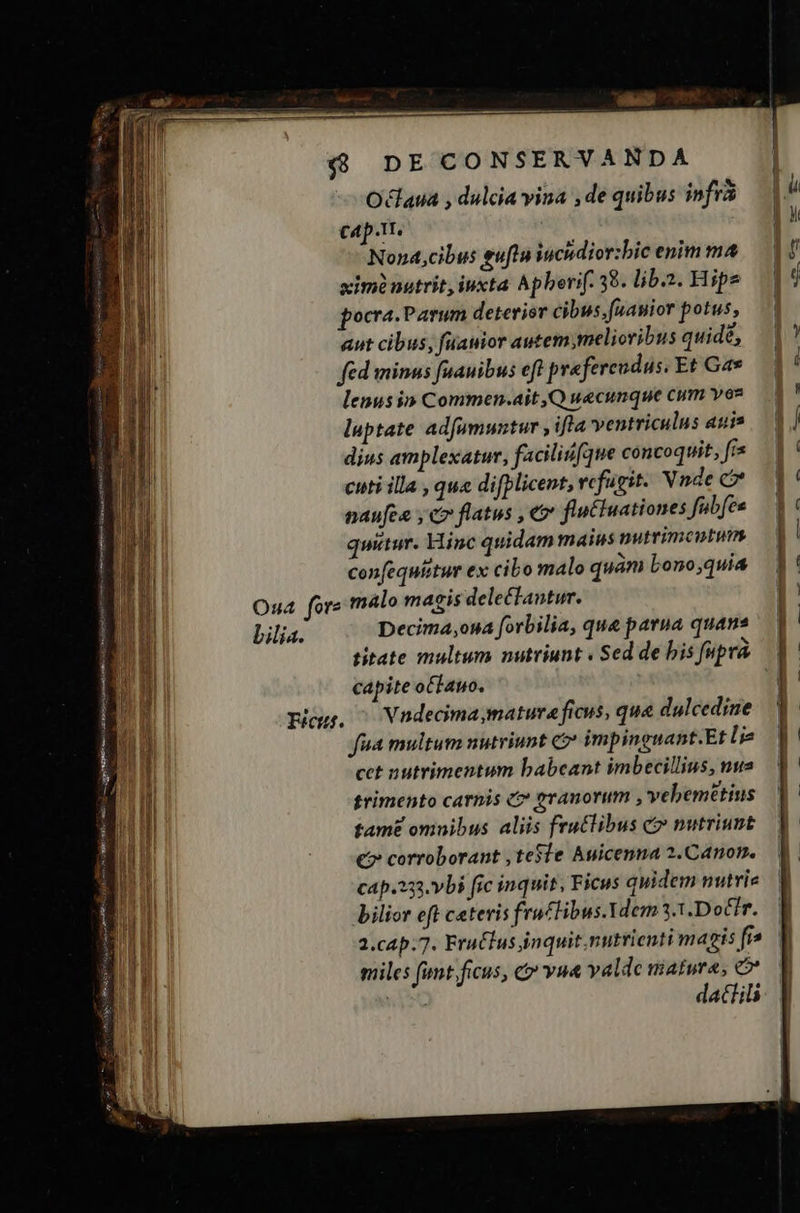 58 DE CONSERVANDA
Octaua, dulcia vina, de quibus infrà
cap.11.
Nona, cibus gustu iucūdior: hic enim ma-
ximè nutrit, iuxta Aphorif. 38. lib.2. Hipo-
pocra. Parum deterior cibus, ſuauior potus,
aut cibus, ſuauior autem, melioribus quidē,
ſed minus ſuauibus eſt præferendus. Et Ga-
lenus in Commen. ait, Quæcunque cum vo-
luptate adſumuntur, iſta ventriculus aui-
dius amplexatur, faciliúſque concoquit, ſi-
cuti illa, quæ diſplicent, refugit. Vnde &
nauſeæ, & flatus, & fluctuationes ſubſe-
quūtur. Hinc quidam maius nutrimentum
conſequūtur ex cibo malo quàm bono, quia
Oua ſor- malo magis delectantur.
bilia. Decima, oua ſorbilia, quæ parua quan-
titate multum nutriunt. Sed de his ſuprà
capite octauo.
Ficus. Vndecima, maturæ ficus, quæ dulcedine
ſua multum nutriunt & impinguant. Et li-
cet nutrimentum habeant imbecillius, nu-
trimento carnis & granorum, vehemētius
tamē omnibus aliis fructibus & nutriunt
& corroborant, teste Auicenna 2. Canon.
cap. 233. vbi ſic inquit, Ficus quidem nutri-
bilior eſt cæteris fructibus. Idem 3.1. Doctr.
2. cap. 7. Fructus, inquit, nutrienti magis ſi-
miles ſunt, ficus, & vuæ valde maturæ, &
dactili